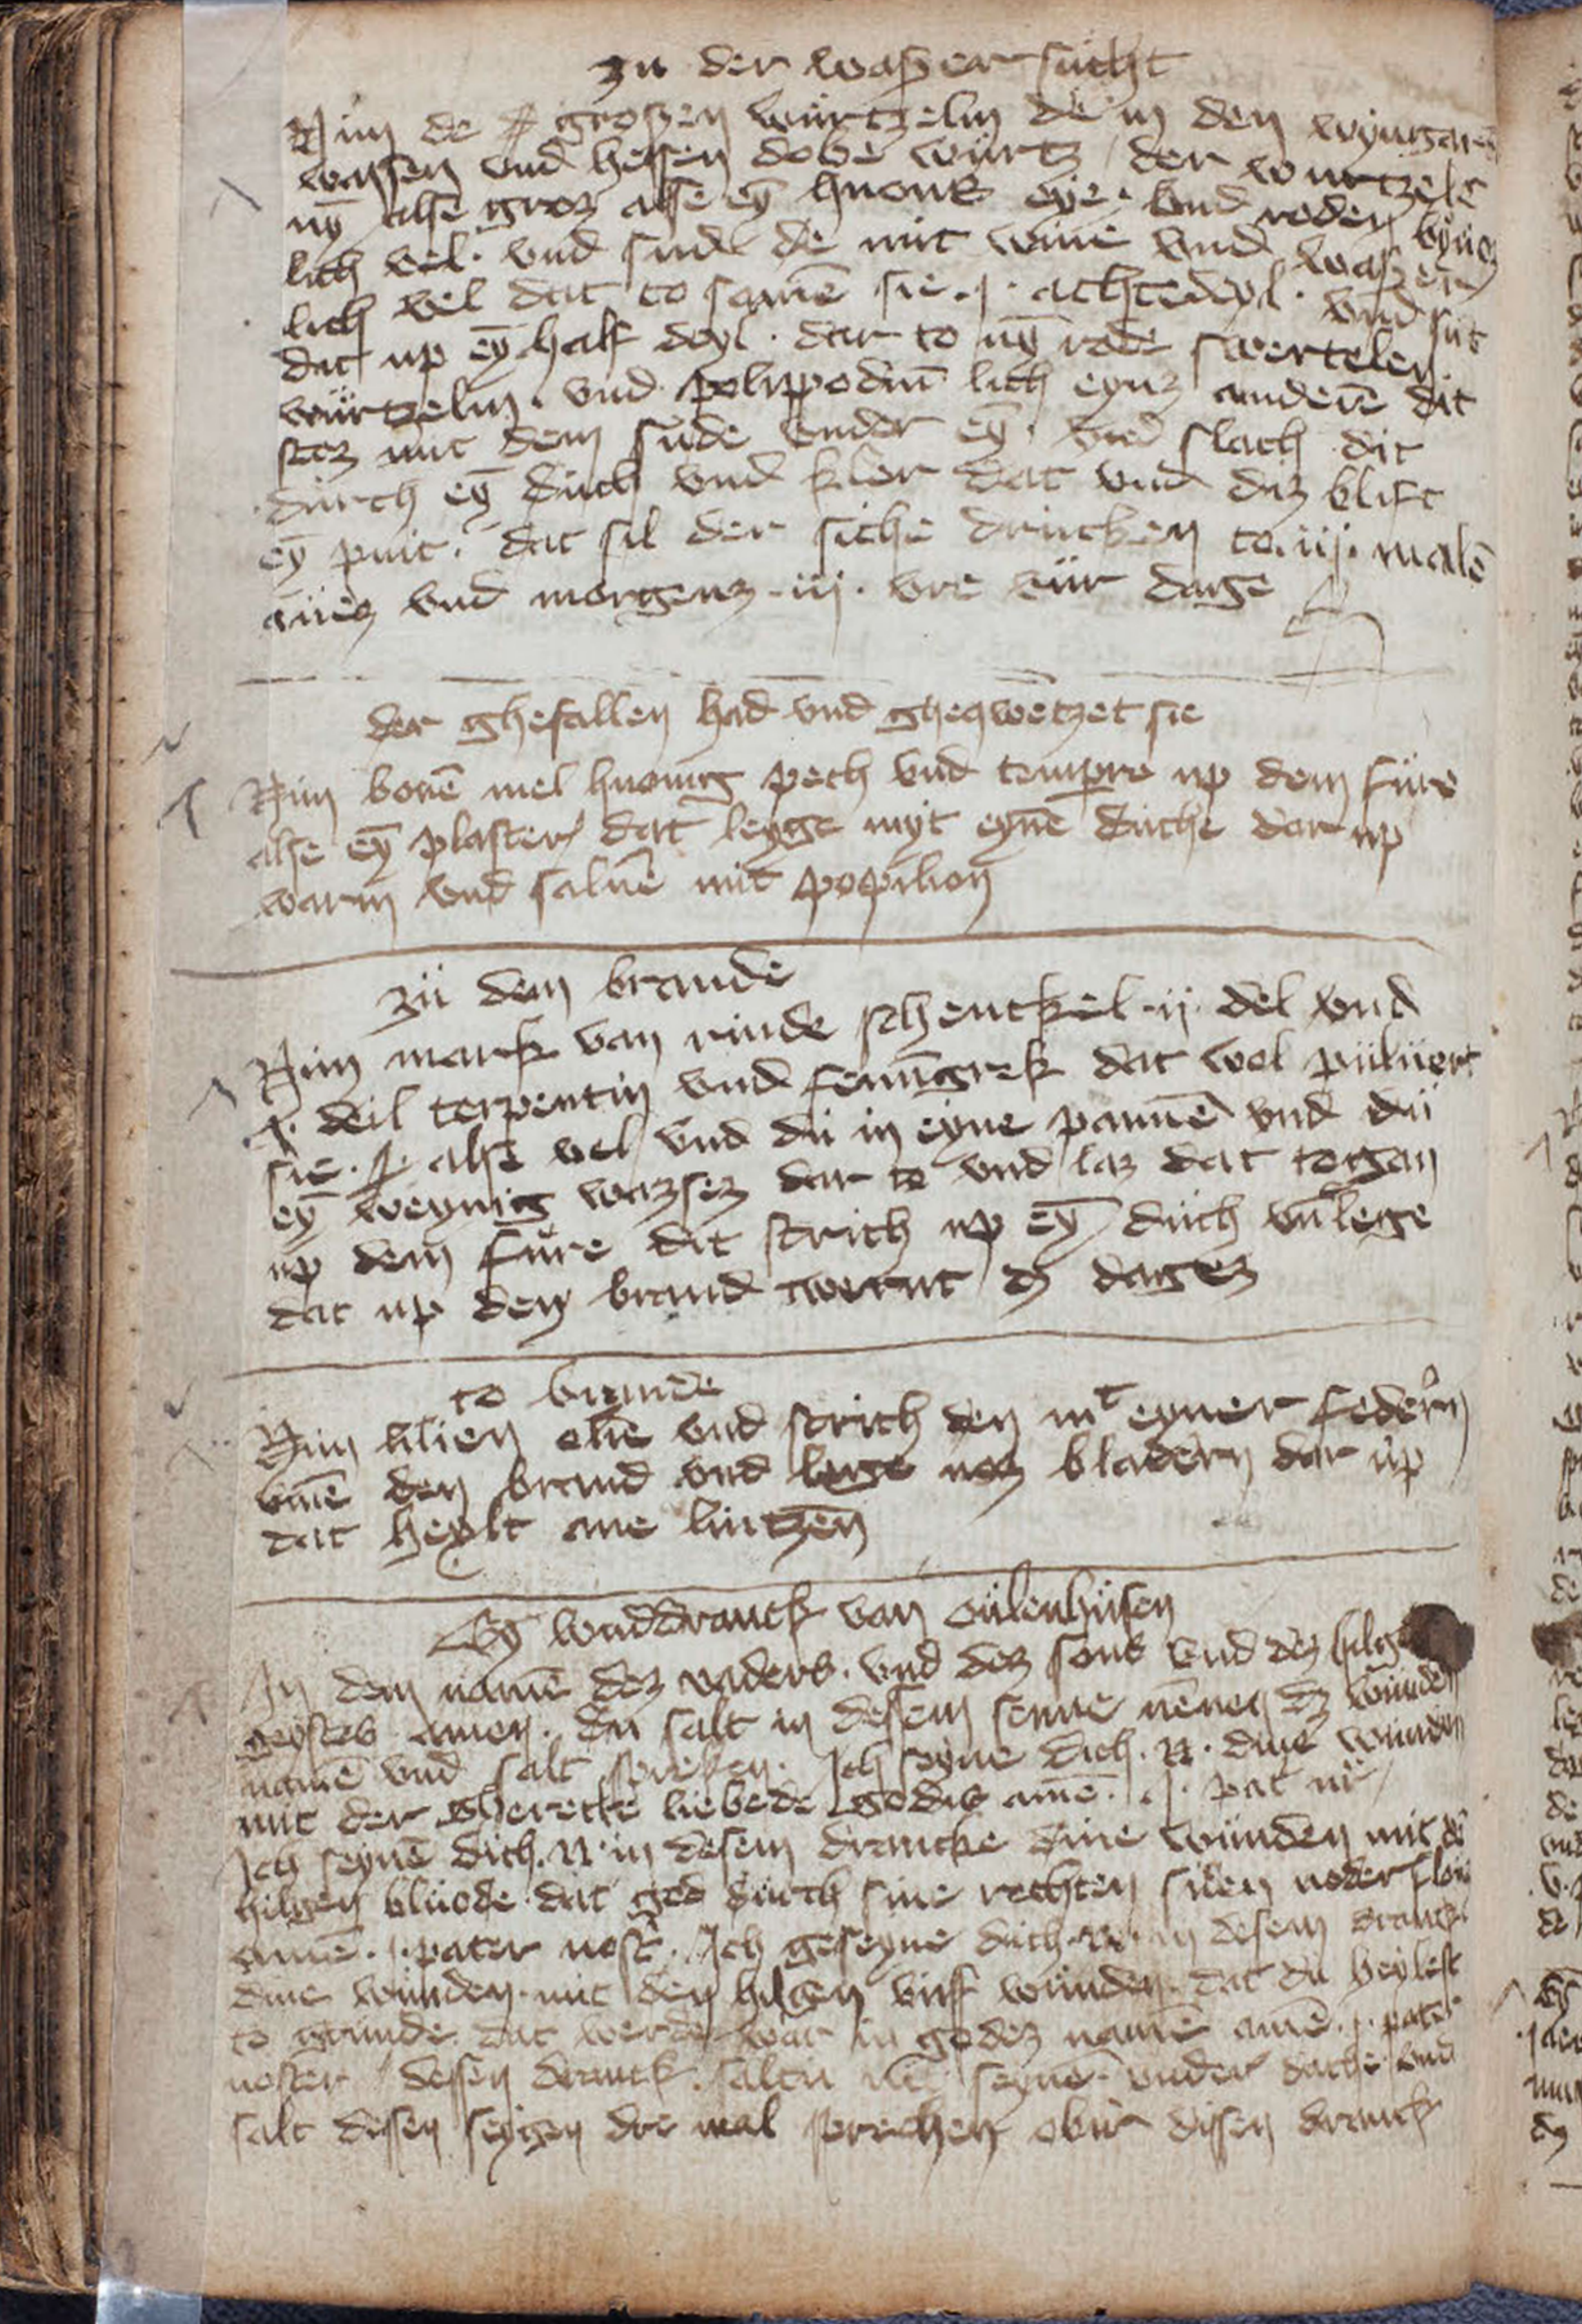 zu der waßersucht
Nim de großen wurtzeln de in den wyngard
wassen vnd heisen dobe wurtz der wurtzele
nȳ alse groz alse eȳ huons eye · vnd roden byuoz
lich vel · vnd sude de mit wine vnd waßer
lich vel dat to samē sie · j · achtedeyl · vnd sut
dat up eȳ half deyl · dar to nȳ rode swertelen
wurtzeln · vnd polippodiū lich eynz anderē dit
stoz mit dem sude vnder eȳ · vnd slach dit
durch eȳ duch vnd kler dat vnd diz blift
eȳ puit · dat sal der siche drincken to · iij · malē
auez vnd morgenz · iij · vre vur dage
der ghefallen had vnd gheqwetzet sie
Nim bonē mel huonig pech vnd tempre up dem fure
alse eȳ plaster dat leyge myt eynē duche dar up
warm vnd saluē mit popilion
zů dem brande
Nim mark van rinde schenckel · ij · del vnd
j · deil terpentin vnd fenūgrek dat wol puluert
sie · alse vel vnd du in eyne pannē vnd du
eȳ weynig wazsez dar to vnd laz dat togan
up dem fure dit strich up eȳ duch vn̄ lege
dat up den brand twernt dz dagez
to brande
Nim lilien olie vnd strich den mᵗ eyner federn
vmē den brand vnd lege noz bladern dar up
dat heylt ane lintzen
Eȳ wuddranck van oulenhusen
In dem namē dez vaders · vnd dez sons vnd dez hilge
geystes amen · du salt in dessem senne nēnen dz wunden
namē vnd salt spreken · Ich seyne dich · N · dine wunden
mit der gherechte liebede godis amē · j · pat nr̄
Ich seynē dich · N · in desem drancke dine wunden mit dē
hilgen bluode dat god durch sine rechten siden neder floiz
amē · j · pater nost̄ · Ich geseyne dich · N · in desem dranck
dine wunden · mit den hilgen viff wunden · dat du heylest
to grunde dat werde war in godez namē amē · j · pater
noster dessen dranck saltu seynē vnder dache vnd
salt dissen seygen dre mal sprechen obir dissen dranck